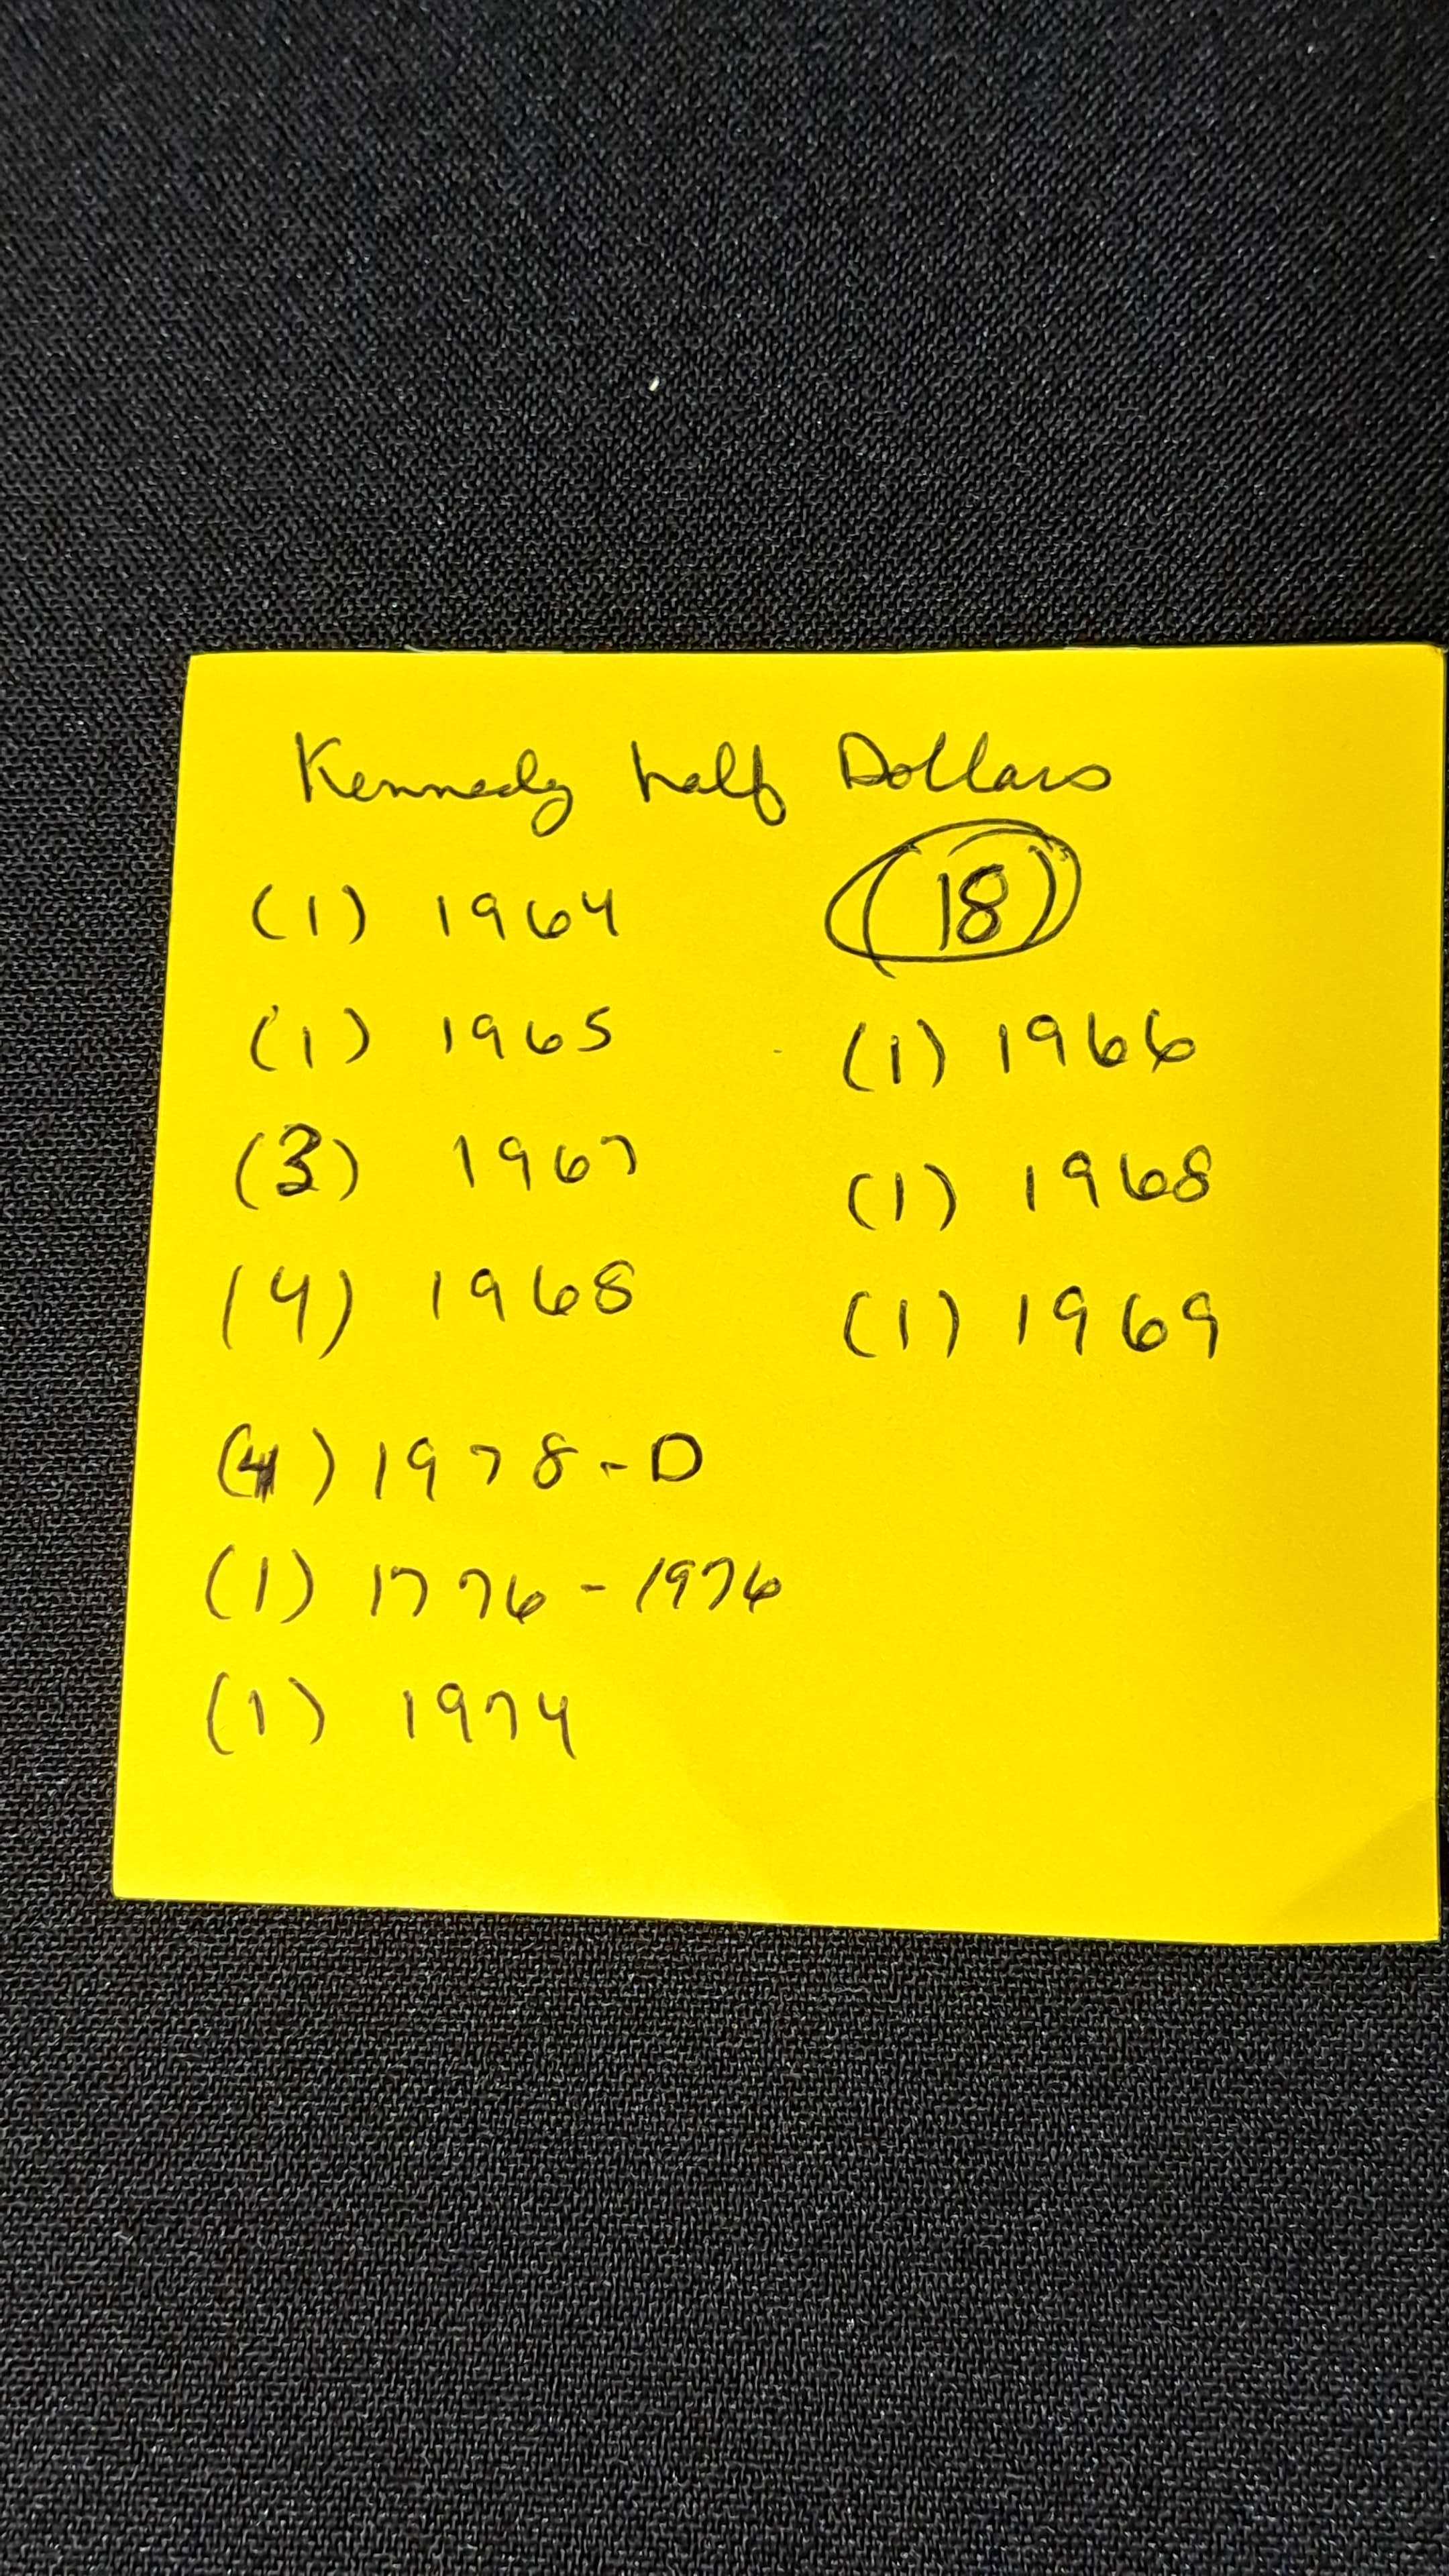 Kennedy half Dollars
(18)
(1) 1964
(1) 1965
(3) 1967
(4) 1968
(4) 1978-D
(1) 1776-1976
(1) 1974
(1) 1966
(1) 1968
(1) 1969